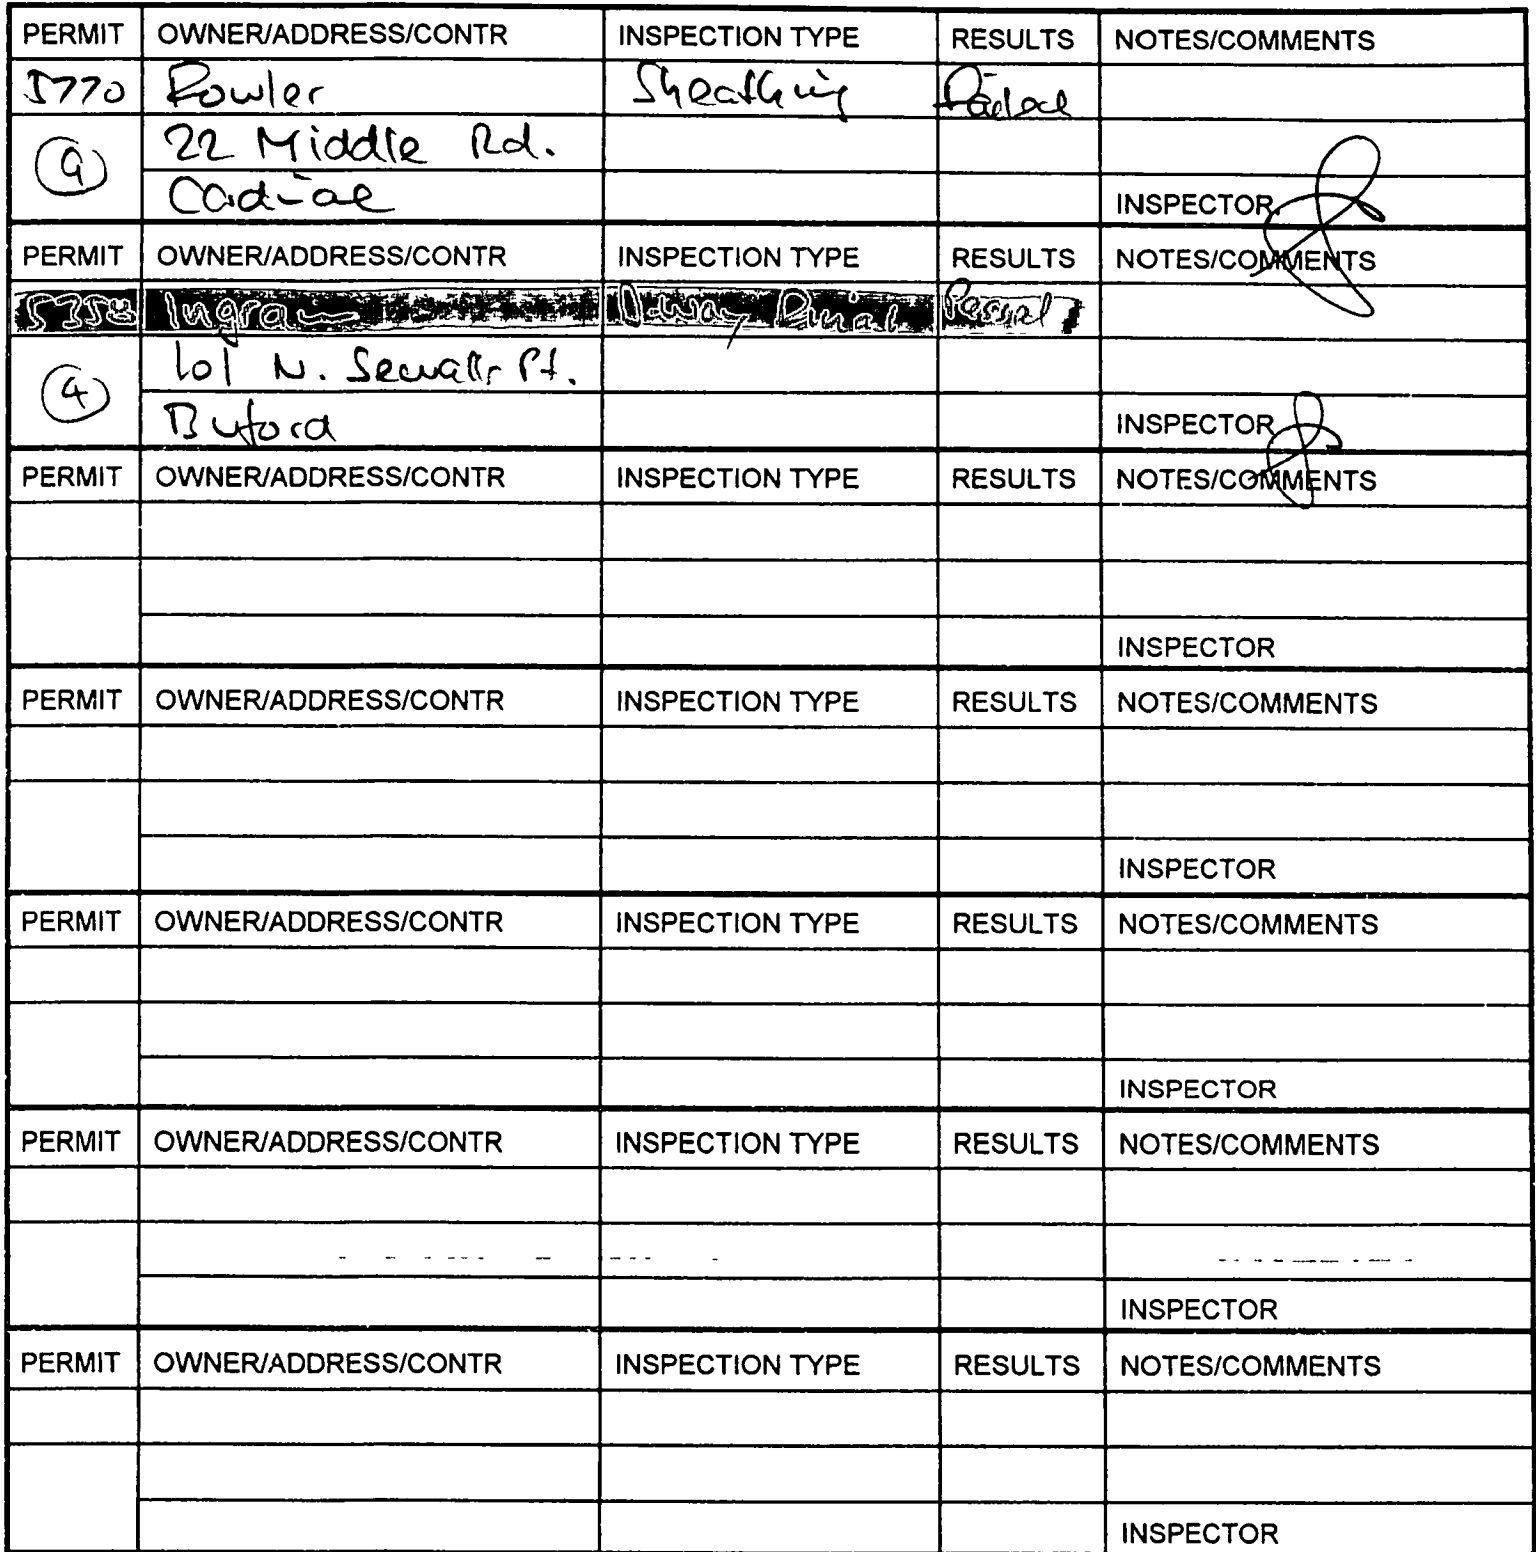 PERMIT OWNER/ADDRESS/CONTR INSPECTION TYPE RESULTS NOTES/COMMENTS
5770 Fowler Sheathing
9 22 Middle Rd.
INSPECTOR
PERMIT OWNER/ADDRESS/CONTR INSPECTION TYPE RESULTS NOTES/COMMENTS
5358 Ingram Final Passed
4 101 N. Sewall's Pt.
Buford INSPECTOR
PERMIT OWNER/ADDRESS/CONTR INSPECTION TYPE RESULTS NOTES/COMMENTS
INSPECTOR
PERMIT OWNER/ADDRESS/CONTR INSPECTION TYPE RESULTS NOTES/COMMENTS
INSPECTOR
PERMIT OWNER/ADDRESS/CONTR INSPECTION TYPE RESULTS NOTES/COMMENTS
INSPECTOR
PERMIT OWNER/ADDRESS/CONTR INSPECTION TYPE RESULTS NOTES/COMMENTS
INSPECTOR
PERMIT OWNER/ADDRESS/CONTR INSPECTION TYPE RESULTS NOTES/COMMENTS
INSPECTOR